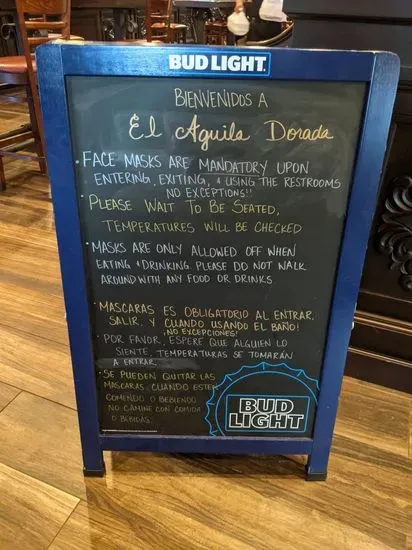 BUD LIGHT
BIENVENIDOS A
El Aguila Dorada
• FACE MASKS ARE MANDATORY UPON
ENTERING, EXITING, & USING THE RESTROOMS
NO EXCEPTIONS!!
• PLEASE WAIT TO BE SEATED,
TEMPERATURES WILL BE CHECKED
• MASKS ARE ONLY ALLOWED OFF WHEN
EATING & DRINKING. PLEASE DO NOT WALK
AROUND WITH ANY FOOD OR DRINKS
• MASCARAS ES OBLIGATORIO AL ENTRAR,
SALIR, Y CUANDO USANDO EL BAÑO!
¡NO EXCEPCIONES!
• POR FAVOR, ESPERE QUE ALGUIEN LO
SIENTE, TEMPERATURAS SE TOMARÁN
A ENTRAR.
• SE PUEDEN QUITAR LAS
MASCARAS CUANDO ESTEN
COMENDO O BEBIENDO
NO CAMINE CON COMIDA
O BEBIDAS.
BUD
LIGHT